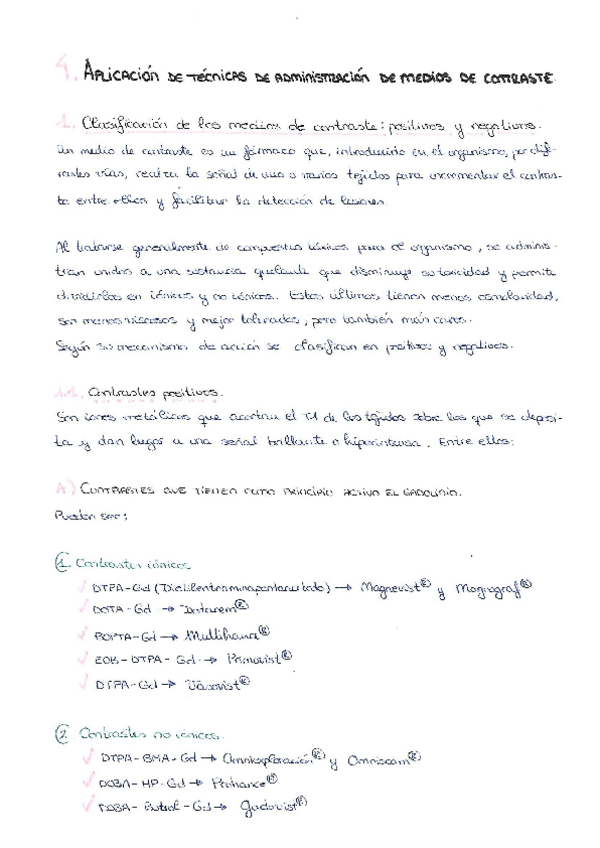 4. APLICACIÓN DE TÉCNICAS DE ADMINISTRACIÓN DE MEDIOS DE CONTRASTE
1. Clasificación de los medios de contraste: positivos y negativos.
Un medio de contraste es un fármaco que, introducido en el organismo, por dife-
rentes vías, realza la señal de uno o varios tejidos para incrementar el contras-
te entre ellos y facilitar la detección de lesiones.
Al tratarse generalmente de compuestos tóxicos para el organismo, se adminis-
tran unidos a una sustancia quelante que disminuye su toxicidad y permite
dividirlos en iónicos y no iónicos. Estos últimos tienen menos osmolaridad,
son menos viscosos y mejor tolerados, pero también más caros.
Según su mecanismo de acción se clasifican en positivos y negativos.
1.1. Contrastes positivos.
Son iones metálicos que acortan el T1 de los tejidos sobre los que se deposi-
ta y dan lugar a una señal brillante o hiperintensa. Entre ellos:
A) CONTRASTES QUE TIENEN COMO PRINCIPIO ACTIVO EL GADOLINIO.
Pueden ser:
1. Contrastes iónicos
DTPA-Gd (Dietilentriaminopentaacetado) → Magnevist® y Magnograf®
DOTA-Gd → Dotarem®
BOPTA-Gd → Multihance®
EOB-DTPA-Gd → Primovist®
DTPA-Gd → Vasovist®
2. Contrastes no iónicos.
DTPA-BMA-Gd → Omniexploración® y Omniscam®
DO3A-HP-Gd → Prohance®
DO3A-Butrol-Gd → Gadovist®